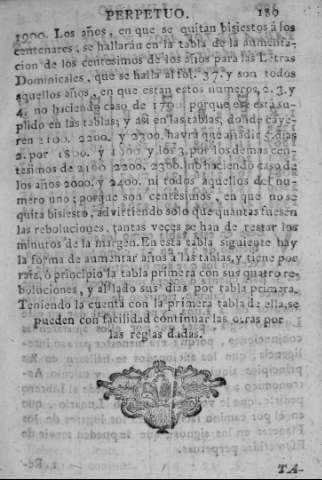 PERPETUO. 189
1900. Los años, en que se quitan bisiestos á los
centenares, se hallarán en la tabla de la aumenta-
cion de los centesimos de los años para las Letras
Dominicales, que se halla al fol. 37. y son todos
aquellos años, en que estan estos numeros, 2. 3. y
4. no haciendo caso de 1700. porque este está su-
plido en las tablas; y asi en las tablas, donde caye-
ren 2100. 2200. y 2300. havrá que añadir dias
2. por 1800. y 1900 y los 3. por los demas cen-
tesimos de 2100 2200. 2300. no haciendo caso de
los años 2000. y 2400. ni todos aquellos del nu-
mero uno; porque son centesimos, en que no se
quita bisiesto, advirtiendo solo que quantas fuesen
las reboluciones, tantas veces se han de restar los
minutos de la margen. En esta tabla siguiente hay
la forma de aumentar años á las tablas, y tiene por
raíz, ó principio la tabla primera con sus quatro re-
boluciones, y al lado sus dias por tabla primera.
Teniendo la cuenta con la primera tabla de ella, se
pueden con facilidad continuar las otras por
las reglas dadas.
TA-